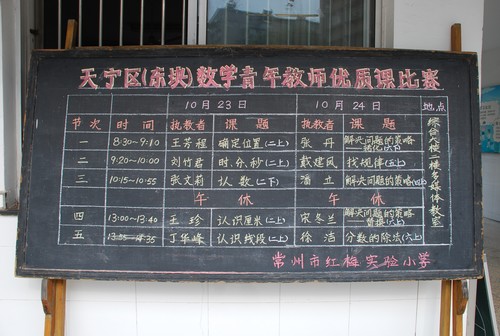 天宁区(东块)数学青年教师优质课比赛
10月23日 10月24日 地点
节次 时间 执教者 课题 执教者 课题
一 8:30-9:10 王芳程 确定位置(二上) 张丹 解决问题的策略 转化(六下)
二 9:20-10:00 刘竹君 时、分、秒(二上) 戴建风 找规律(五上)
三 10:15-10:55 张文莉 认数(二下) 潘立 解决问题的策略(四上)
午休 午休
四 13:00-13:40 王珍 认识厘米(二上) 宋冬兰 解决问题的策略 替换(六上)
五 13:55-14:35 丁华峰 认识线段(二上) 徐洁 分数的除法(六上)
综合大楼二楼多媒体教室
常州市红梅实验小学